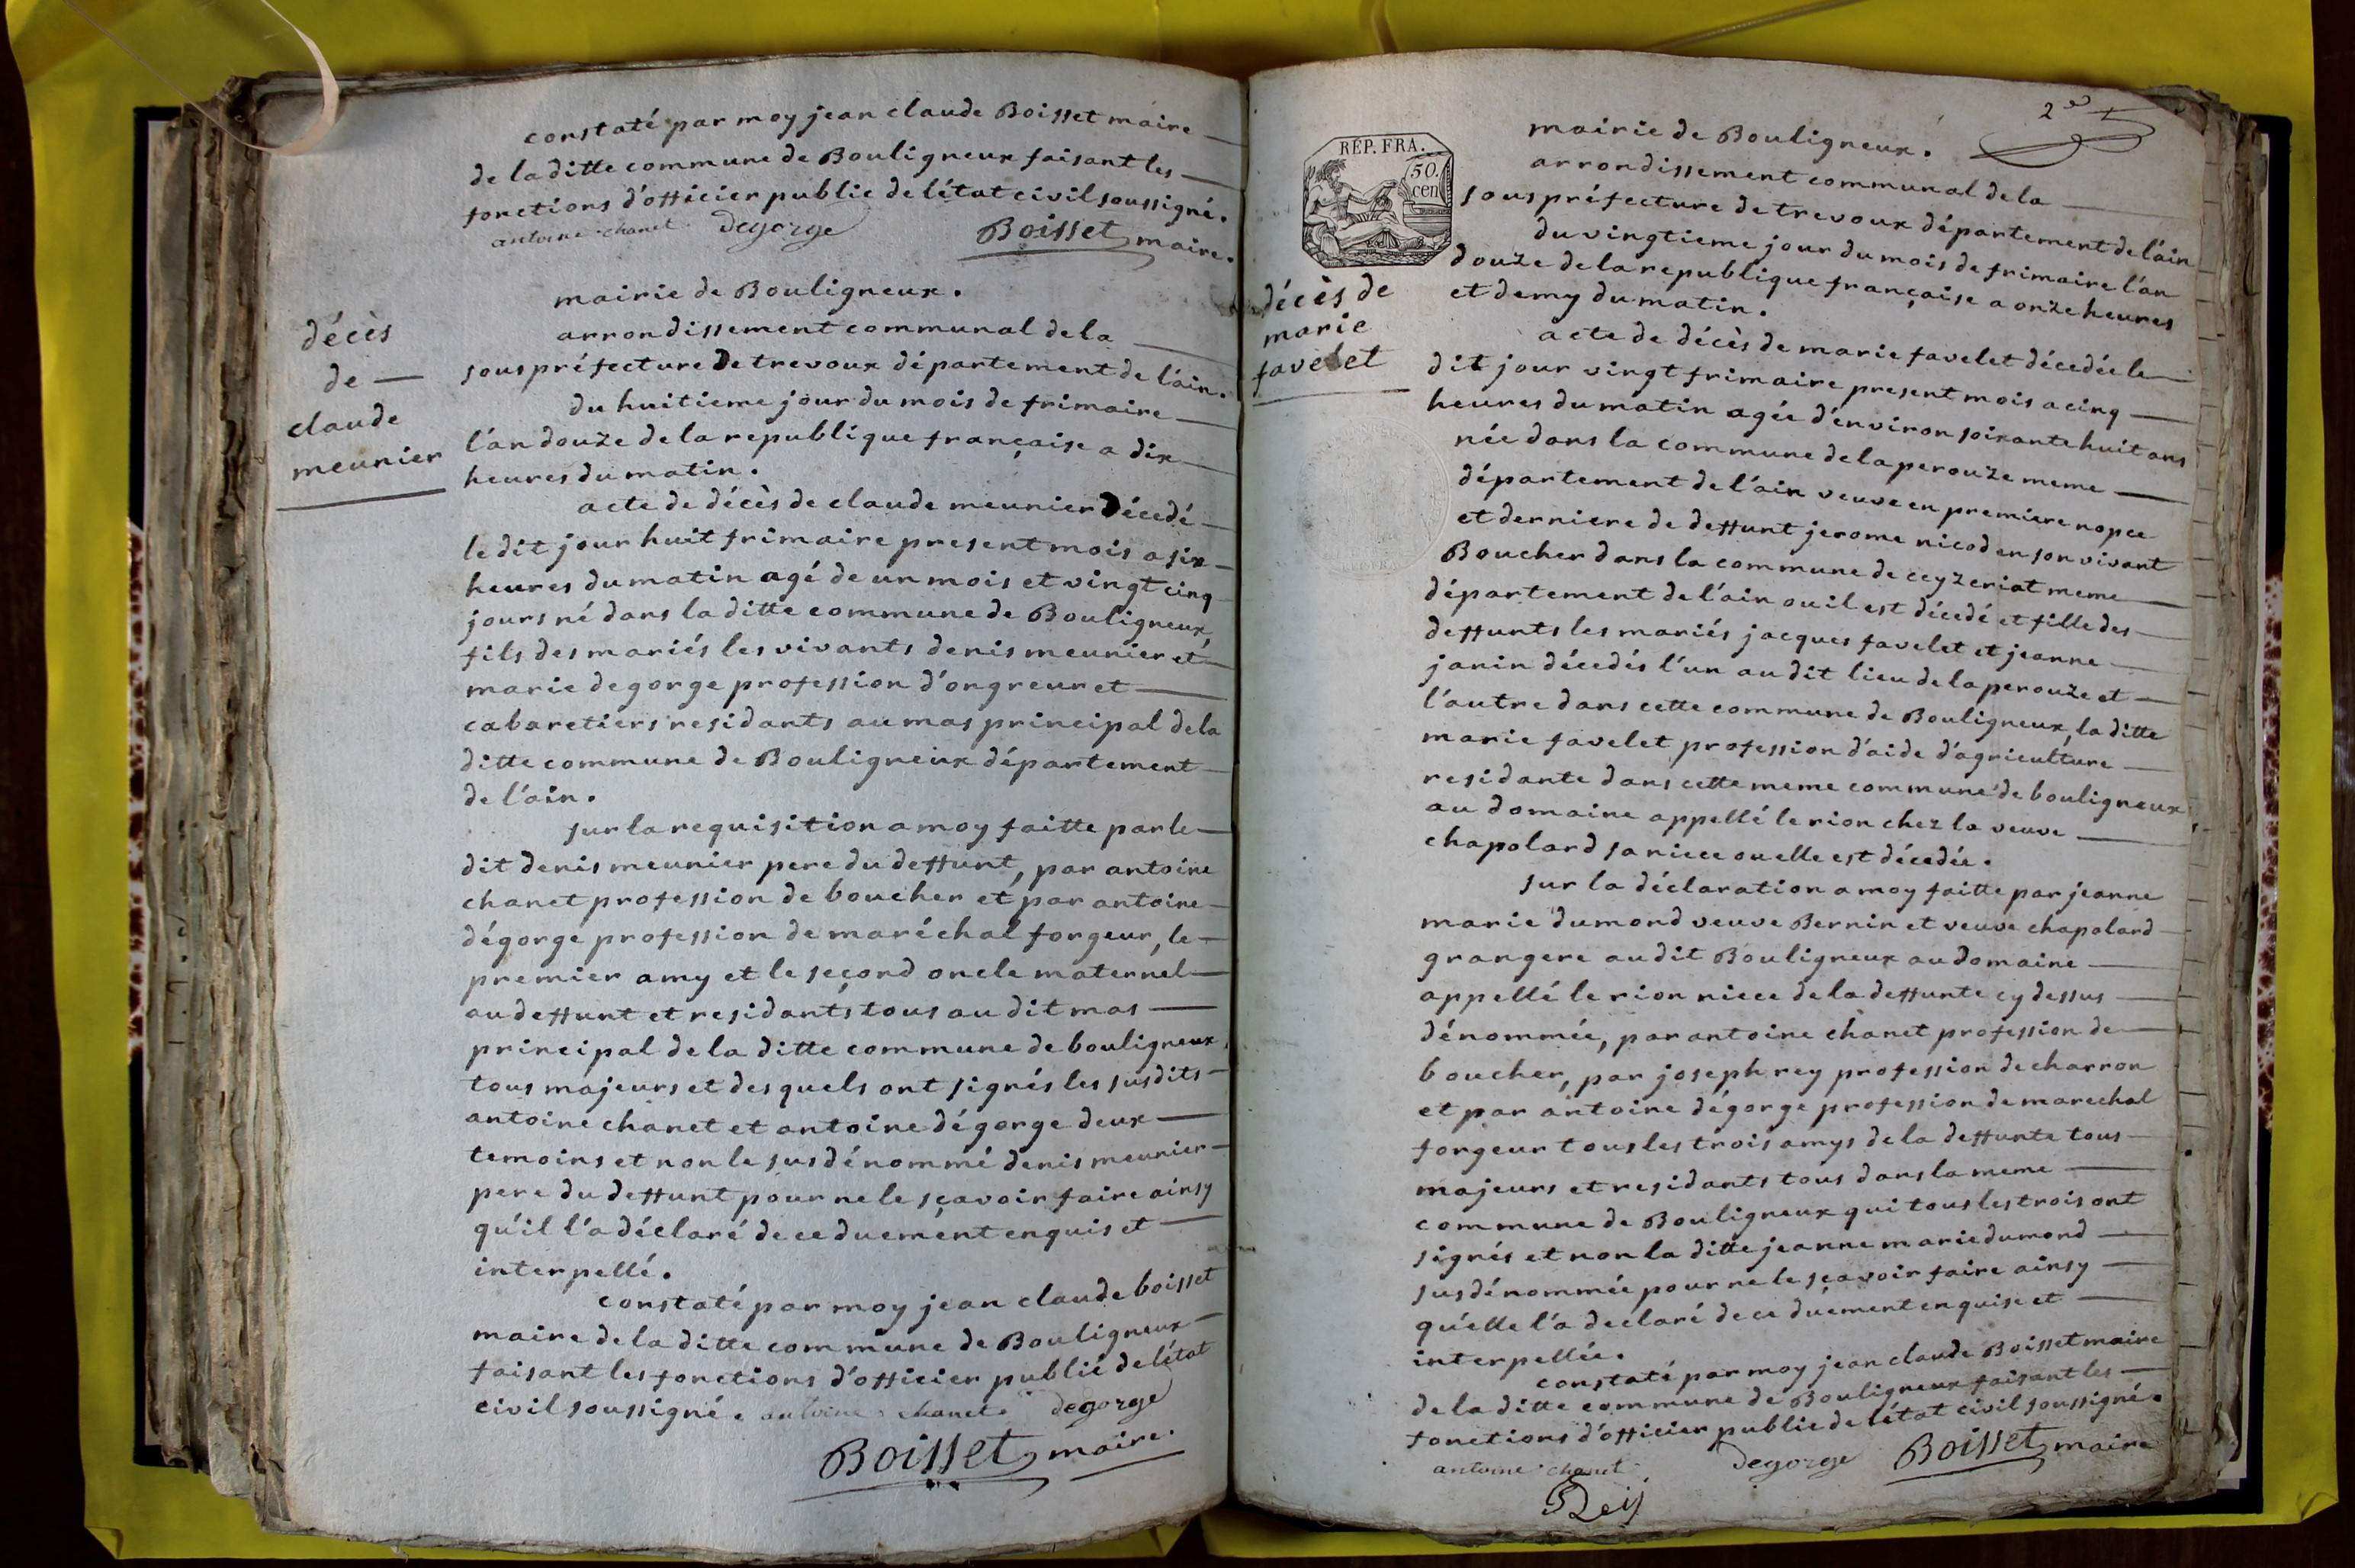 constaté par moy jean claude Boisset maire
de la ditte commune de Bouligneux faisant les
fonctions d'officier public de l'état civil soussigné.
antoine chanet degorge Boisset maire.
décès
de
claude
meunier
mairie de Bouligneux.
arrondissement communal de la
souspréfecture De trevoux département de l'ain.
du huitieme jour du mois de frimaire
l'an douze de la republique française a dix
heures du matin.
acte de décès de claude meunier Décedé
le dit jour huit frimaire present mois a six
heures du matin agé de un mois et vingt cinq
jours né dans la ditte commune de Bouligneux
fils des mariés les vivants denis meunier et
marie degorge profession d'ongreur et
cabaretiers residants au mas principal de la
ditte commune de Bouligneux département
de l'ain.
sur la requisition a moy faitte par le
dit denis meunier pere du deffunt, par antoine
chanet profession de boucher et par antoine
dégorge profession de maréchal forgeur, le
premier amy et le second oncle maternel
au deffunt et residants tous au dit mas
principal de la ditte commune de bouligneux
tous majeurs et desquels ont signés les susdits
antoine chanet et antoine dégorge deux
temoins et non le susdénommé denis meunier
pere du deffunt pour ne le sçavoir faire ainsy
qu'il l'a déclaré de ce duement enquis et
interpellé.
constaté par moy jean claude boisset
maire de la ditte commune de Bouligneux
faisant les fonctions d'officier public de l'état
civil soussigné. antoine chanet degorge
Boisset maire.
2e
RÉP. FRA.
50.
cen
décès de
marie
favelet
mairie de Bouligneux.
arrondissement communal de la
souspréfecture de trevoux département de l'ain
du vingtieme jour du mois de frimaire l'an
douze de la republique française a onze heures
et demy du matin.
acte de décès de marie favelet décedée le
dit jour vingt frimaire present mois a cinq
heures du matin agée d'environ soixante huit ans
née dans la commune de la perouze meme
département de l'ain veuve en premiere nopce
et derniere de deffunt jerome nicod en son vivant
Boucher dans la commune de ceyzeriat meme
département de l'ain ou il est décedé et fille des
deffunts les mariés jacques favelet et jeanne
janin décedés l'un au dit lieu de la perouze et
l'autre dans cette commune de Bouligneux, la ditte
marie favelet profession d'aide d'agriculture
residante dans cette meme commune de bouligneux
au domaine appellé le rion chez la veuve
chapolard sa niece ou elle est décedée.
sur la déclaration a moy faitte par jeanne
marie dumond veuve Bernin et veuve chapolard
grangere au dit Bouligneux au domaine
appellé le rion niece de la deffunte cy dessus
dénommée, par antoine chanet profession de
boucher, par joseph rey profession de charron
et par antoine dégorge profession de marechal
forgeur tous les trois amys de la deffunte tous
majeurs et residants tous dans la meme
commune de Bouligneux qui tous les trois ont
signés et non la ditte jeanne marie dumond
susdénommée pour ne le sçavoir faire ainsy
qu'elle l'a declaré de ce duement enquise et
interpellée.
constaté par moy jean claude Boisset maire
de la ditte commune de Bouligneux faisant les
fonctions d'officier public de l'état civil soussigné.
antoine chanet degorge Boisset maire
Reis